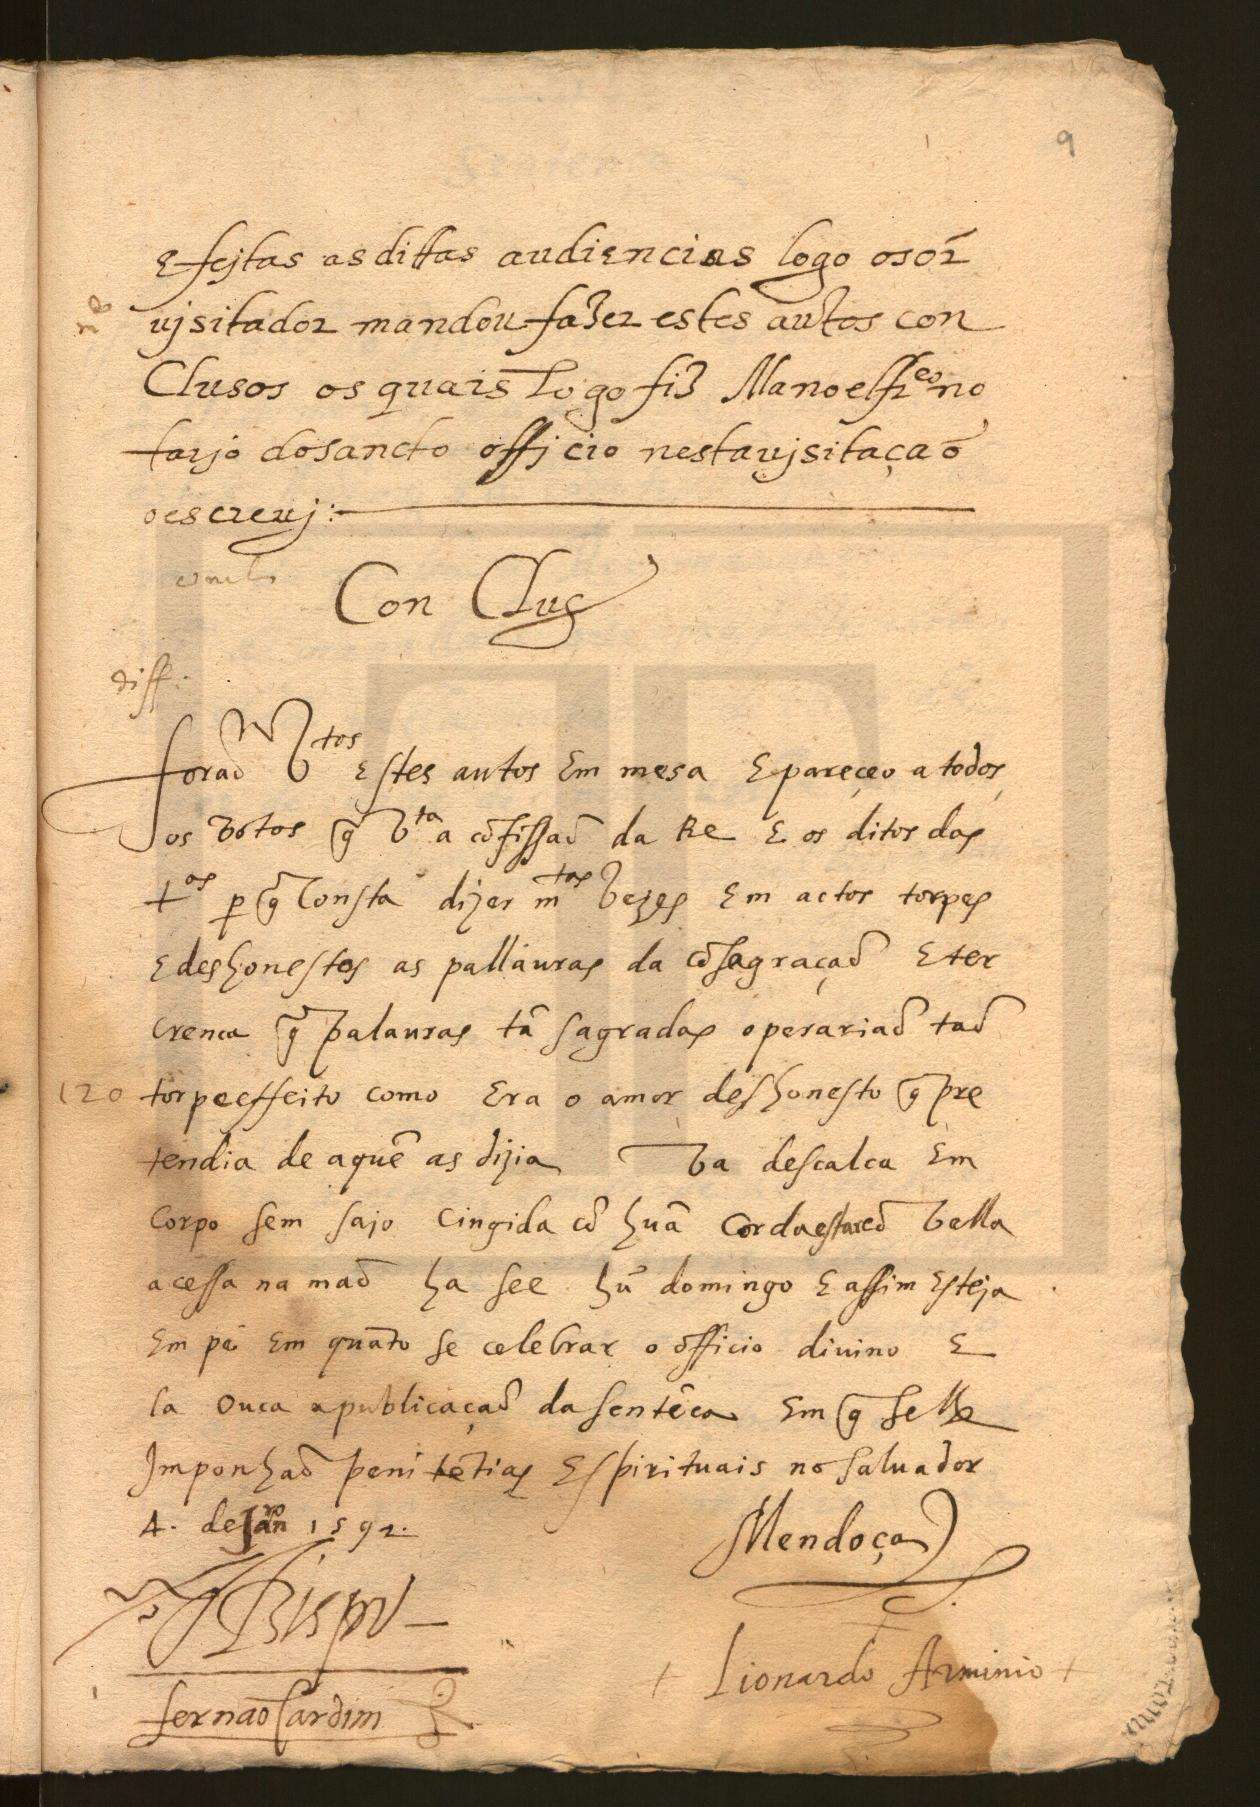 9
E fejtas as dittas audiencias logo o sõr
vjsitador mandou fazer estes autos con
Clusos os quais logo fiz Manoel frco no
tarjo do sancto officio nesta vjsitaçaõ
o escrevj:
Con Clus
diff:
foraõ vtos estes autos Em mesa E pareçeo a todos
os votos q̃ vta a cõfissaõ da Re E os ditos das
tas p q̃ Consta dizer mtas vezes Em actos torpes
E deshonestos as pallauras da cõsagraçaõ E ter
crenca q̃ palauras tã sagradas operariaõ taõ
120 torpe effeito como Era o amor deshonesto q̃ pre
tendia de a quẽ as dizia Va descalca Em
Corpo sem sajo Cingida cõ huã Corda va vella
acessa na maõ ha see hũ domingo E assim Esteja
Em pé Em quãto se celebrar o officio divino E
la Ouca a publicaçaõ da sentẽca Em q̃ se lhe
Imponhaõ penitẽtias Espirituais no salvador
4. de Janro 1592.
Mendoça
Bispo
Lionardo Arminio
fernaõ Cardim